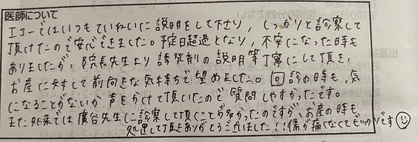 医師について
エコーではいつもていねいに説明をして下さり、しっかりと診察して
頂けたので安心できました。予定日超過となり、不安になった時も
ありましたが、院長先生より誘発剤の説明等丁寧にして頂き、
お産に対して前向きな気持ちで望めました。回診の時も、気
になることがないか声をかけて頂いたので質問しやすかったです。
また外来では 先生に診察して頂くことが多かったのですが、お産の時も
処置して頂きありがとうございました!!傷が痛くなくてビックリです